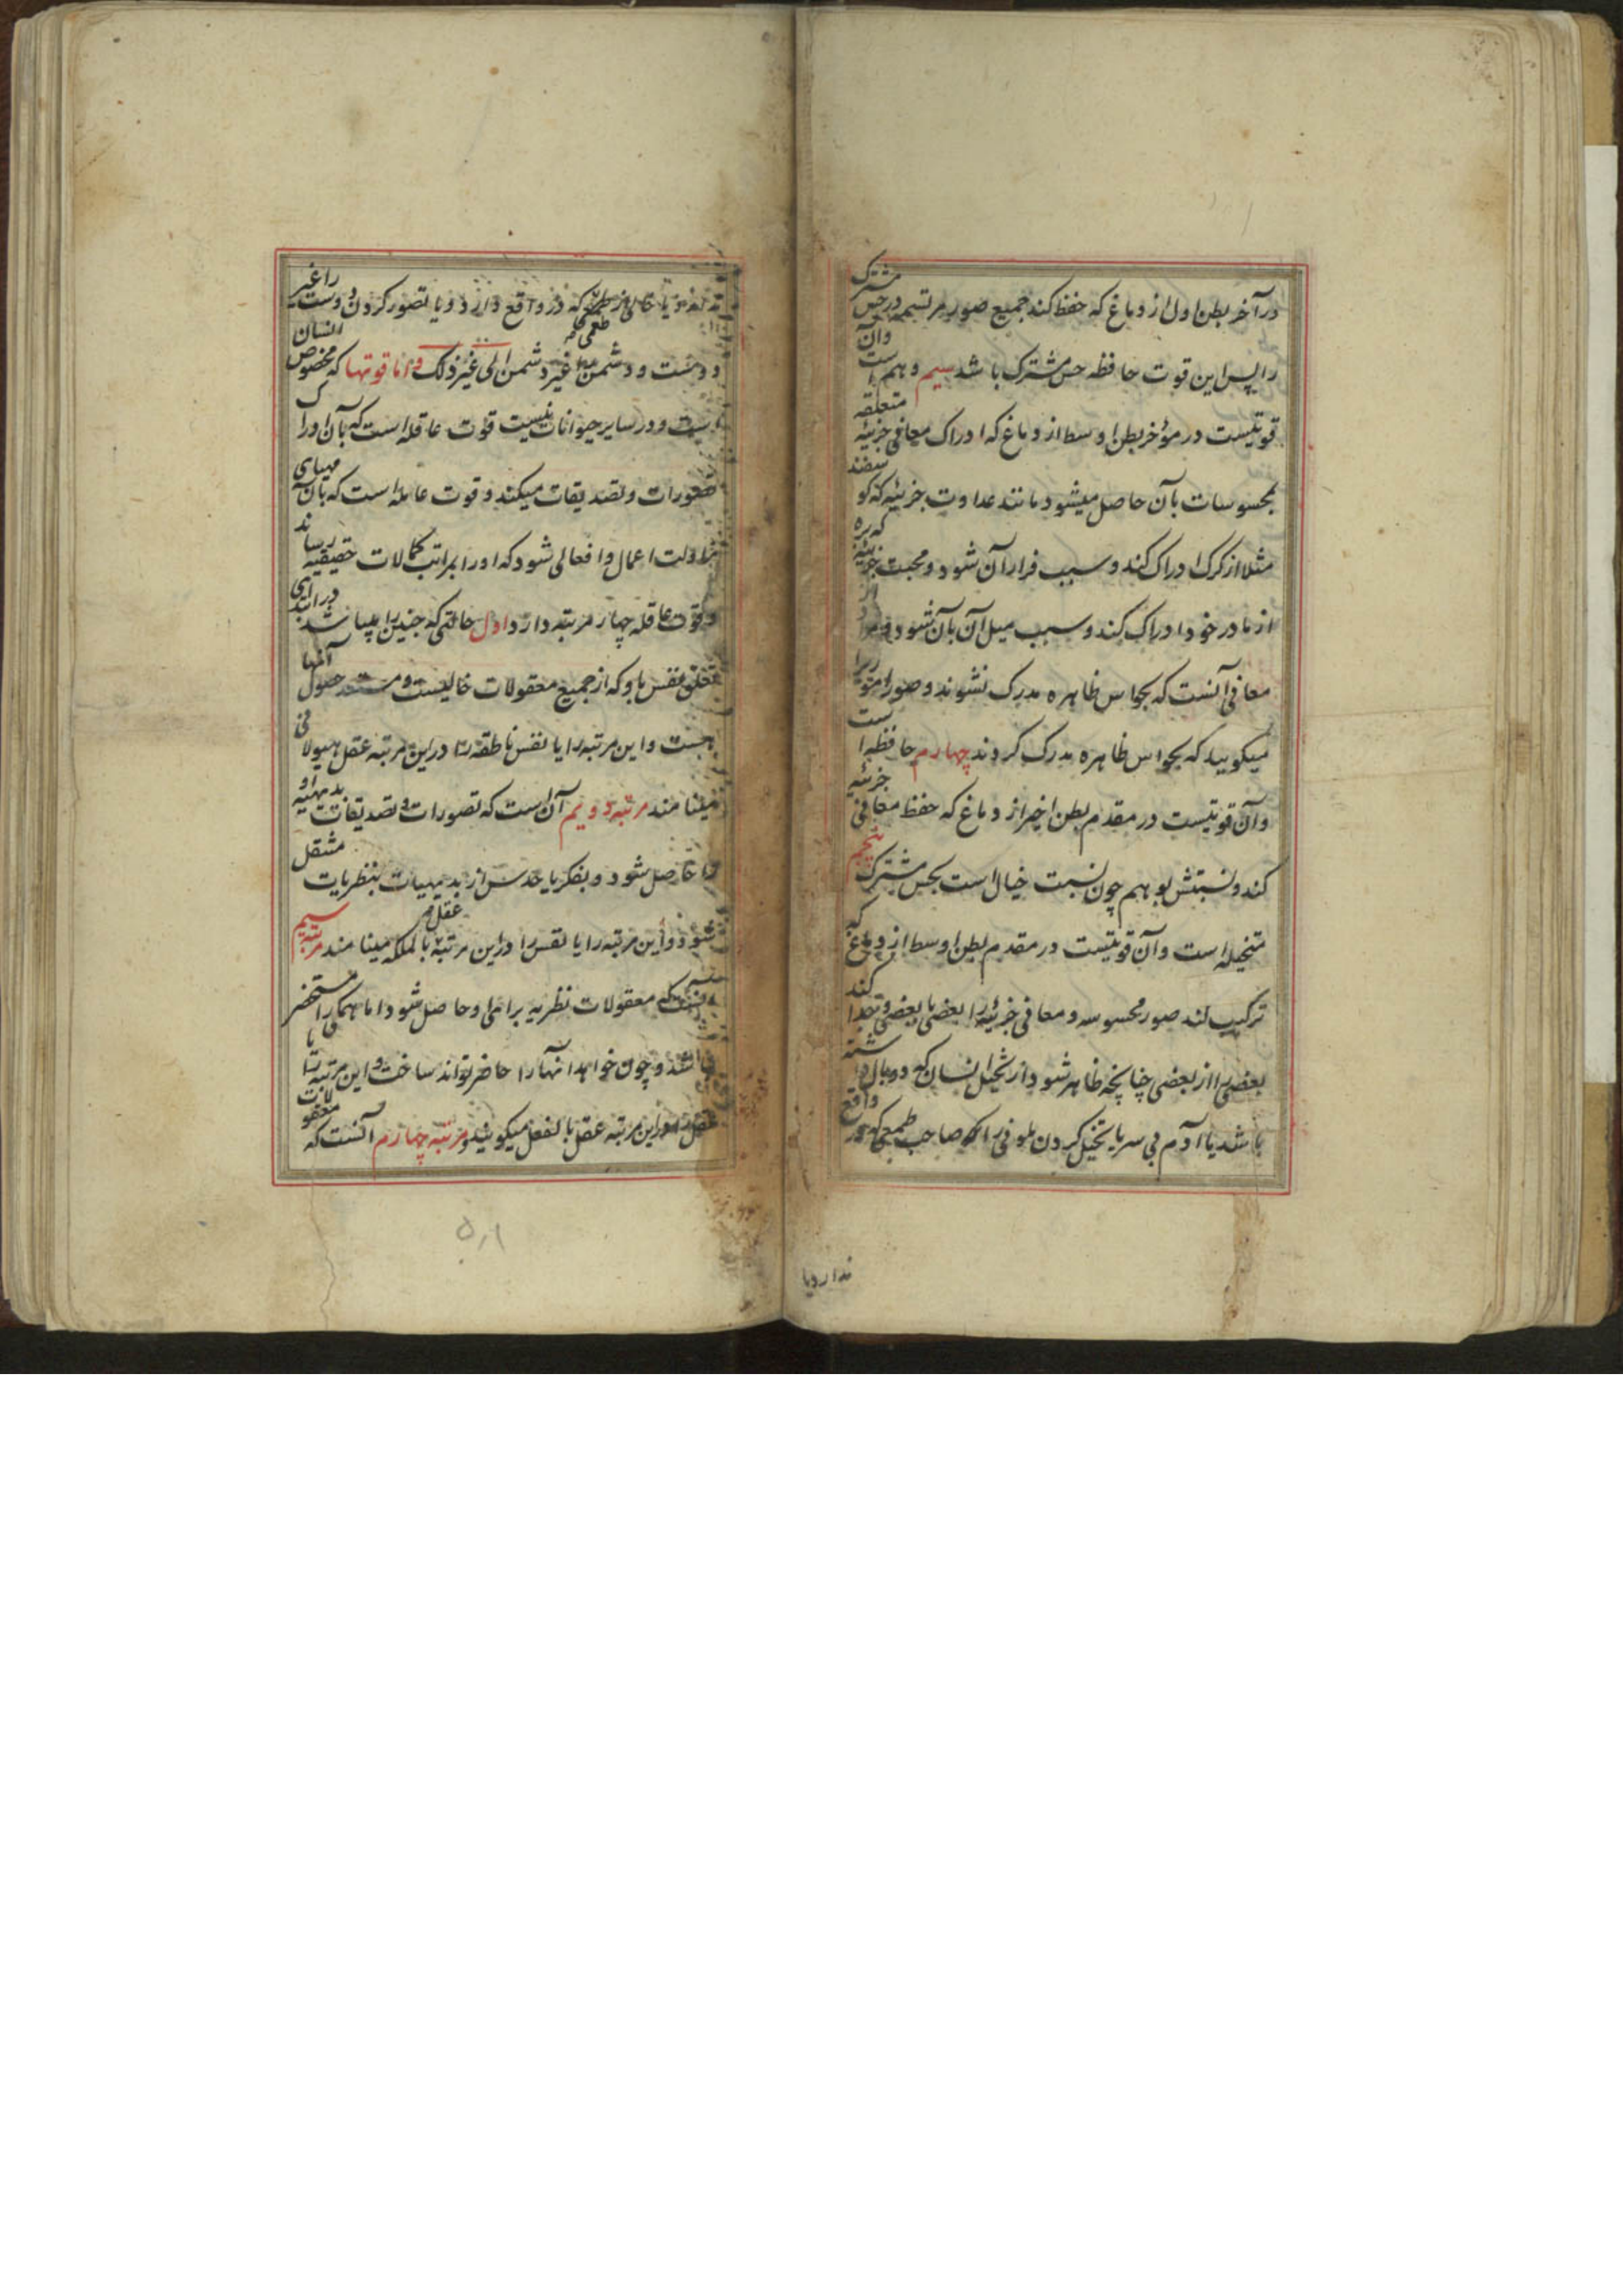 در آخر بطن اول از دماغ که حفظ کند جمیع صور مرتسمه در حس مشترک
را پس این قوت حافظه حس مشترک باشد سیم وهم است وآن
قوتیست در مؤخر بطن اوسط از دماغ که ادراک معانی جزئیه متعلقه
بمحسوسات بآن حاصل میشود مانند عداوت جزئیه که گوسفند
مثلا از گرگ ادراک کند و سبب فرار آن شود و محبت جزئیه که بره
از مادر خود ادراک کند و سبب میل آن بآن شود
معانی آنست که بحواس ظاهره مدرک نشوند و صور امور را
میگویید که بحواس ظاهره مدرک گردند چهارم حافظه است
وآن قوتیست در مقدم بطن اخیر از دماغ که حفظ معانی جزئیه
کند و نسبتش بوهم چون نسبت خیال است بحس مشترک پنجم
متخیله است وآن قوتیست در مقدم بطن اوسط از دماغ که
ترکیب کند صور محسوسه و معانی جزئیه را بعضی با بعضی و جدا کند
بعضی را از بعضی چنانچه ظاهر شود از تخیل انسان که دو بال داشته
باشد یا آدم بی سر یا تخیل کردن ملونی را که صاحب طمعی که در واقع
ندارد یا
ندارد یا خالی از طعمی که در واقع دارد و یا تصور کردن دوست را غیر
دوست و دشمن را غیر دشمن الی غیر ذلک و اما قوتها که مخصوص انسان
است و در سایر حیوانات نیست قوت عاقله است که بآن ادراک
تصورات و تصدیقات میکند و قوت عامله است که بآن مهیای
مزاولت اعمال و افعالی شود که او را بمراتب کمالات حقیقیه رساند
و قوت عاقله چهار مرتبه دارد اول حالتی که جنین را پیدا شد در ابتدای
تعلق نفس باو که از جمیع معقولات خالیست و مستعد حصول آنها
هست و این مرتبه را یا نفس ناطقه را در این مرتبه عقل هیولانی
مینامند مرتبه دویم آن است که تصورات و تصدیقات بدیهیه او
را حاصل شود و بفکر یا حدس از بدیهیات بنظریات منتقل
شود و این مرتبه را یا نفس را در این مرتبه عقل بالملکه مینامند مرتبه سیم
آنست که معقولات نظریه برای او حاصل شود اما همه را مستحضر
نباشد و چون خواهد آنها را حاضر تواند ساخت و این مرتبه را یا
نفس را در این مرتبه عقل بالفعل میگویند و مرتبه چهارم آنست که معقولات